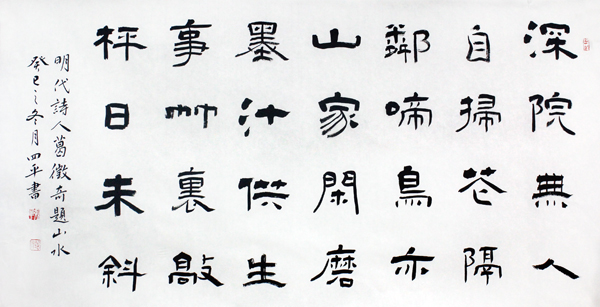 深院無人
自掃花隔
鄰啼鳥亦
山家閑磨
墨汁供生
事竹裏敲
枰日未斜
明代詩人葛徵奇題山水
癸巳之冬月四平書